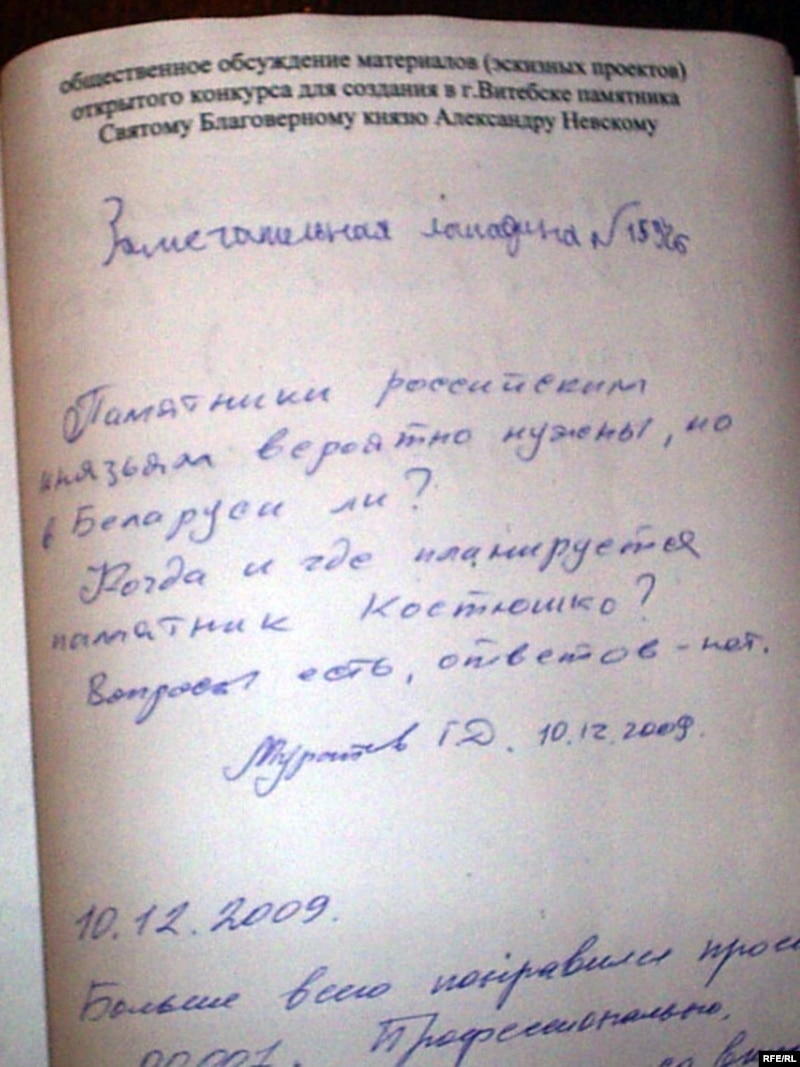 общественное обсуждение материалов (эскизных проектов)
открытого конкурса для создания в г.Витебске памятника
Святому Благоверному князю Александру Невскому
Замечательная лошадина №
Памятники российским
князьям вероятно нужны, но
в Беларуси ли?
Когда и где планируется
памятник Костюшко?
Вопросы есть, ответов - нет.
Муратов Г.Д. 10.12.2009.
10.12.2009.
Больше всего понравился
Профессионально.
RFE/RL